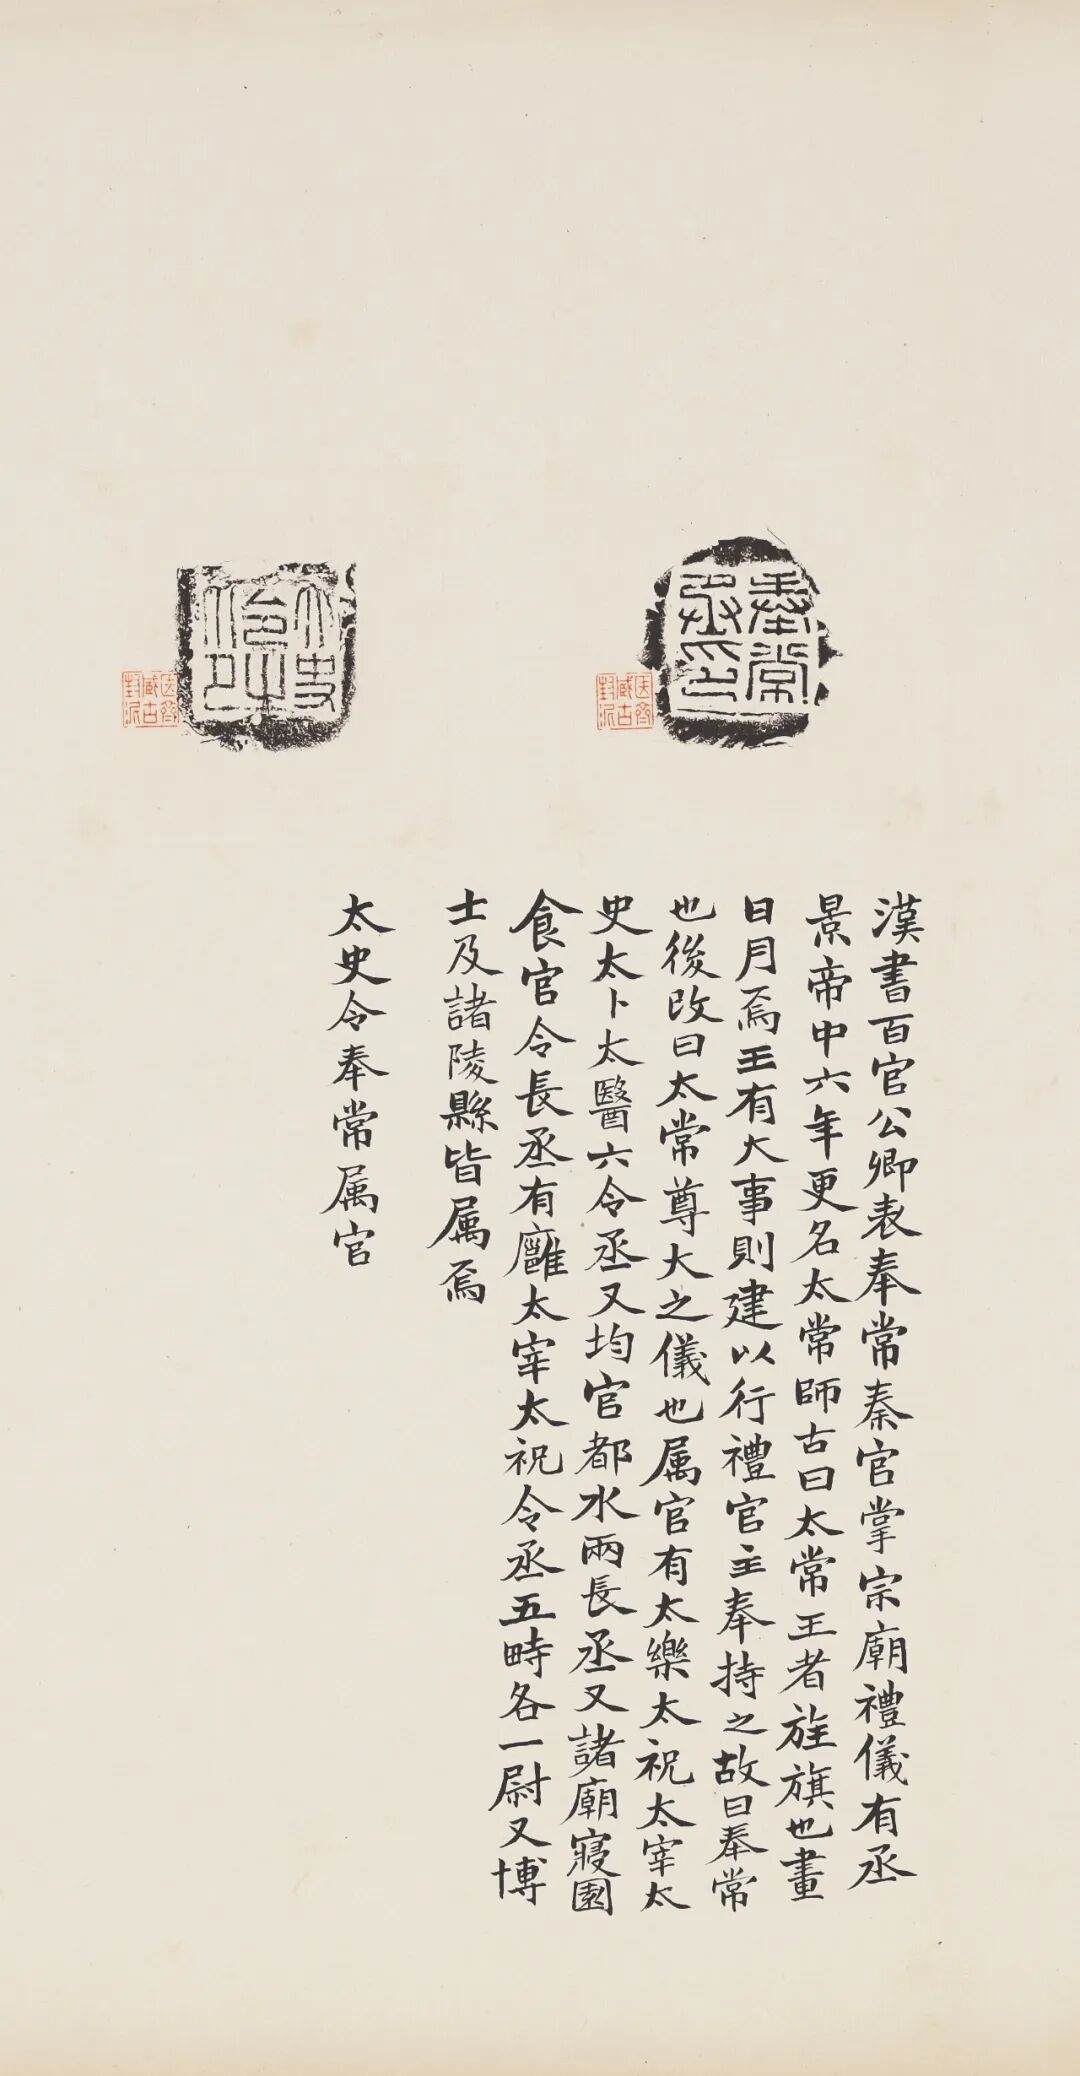 奉常
丞印
臧古
封泥
臧古
封泥
漢書百官公卿表奉常秦官掌宗廟禮儀有丞
景帝中六年更名太常師古曰太常王者旌旗也畫
日月焉王有大事則建以行禮官主奉持之故曰奉常
也後改曰太常尊大之儀也属官有太樂太祝太宰太
史太卜太醫六令丞又均官都水兩長丞又諸廟寢園
食官令長丞有廱太宰太祝令丞五畤各一尉又博
士及諸陵縣皆属焉
太史令奉常属官